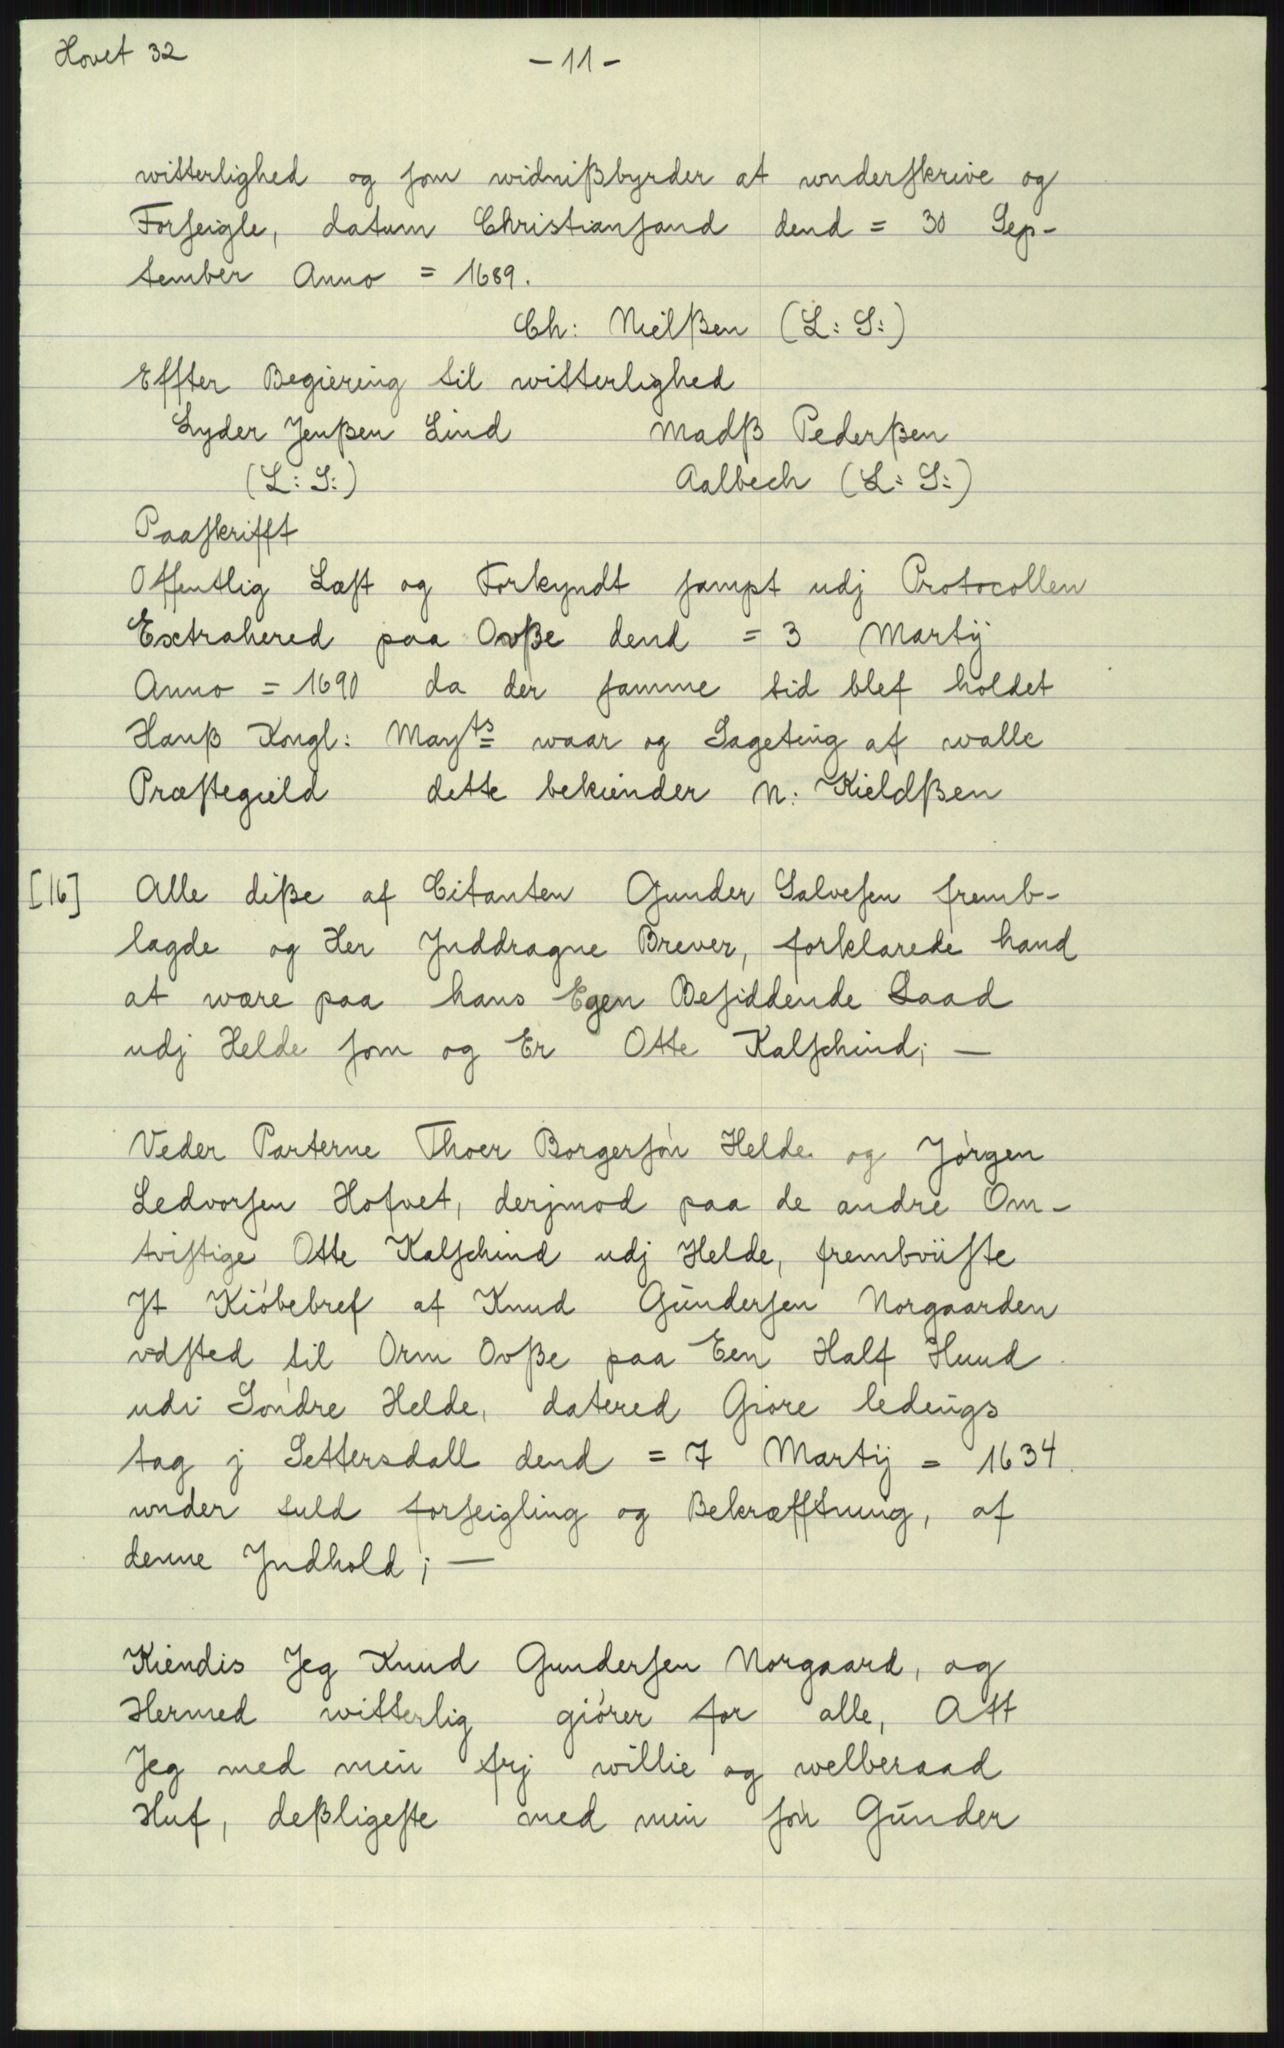 Hovet 32
- 11 -
witterlighed og som widnißbyrder at underskrive og
Forseigle, datum Christiansand dend = 30 Sep-
tember Anno = 1689.
Ch: Nielßen (L: S:)
Effter Begiering til witterlighed
Lyder Jenßen Lind Madß Pederßen
(L: S:) Aalbech (L: S:)
Paaskrifft
Offentlig Læst og Forkyndt sampt udj Protocollen
Extrahered paa Ovße dend = 3 Martij
Anno = 1690 da der samme tid blef holdet
Hanß Kongl: Mayts waar og Sageting af walle
Præstegield dette bekiender N: Kieldßen
[16] Alle diße af Citanten Gunder Salvesen fremb-
lagde og Her Jnddragne Brever, forklarede hand
at være paa hans Egen Besiddende Laad
udj Helde som og Er Otte Kalfschind; —
Veder Parterne Thoer Borgersón Helde og Jórgen
Ledvorsen Hofvet, derjmod paa de andre Om-
tvistige Otte Kalfschind udj Helde, frembviiste
Jt Kióbebref af Knud Gūndersen Norgaarden
vdsted til Orm Ovße paa Een Half Huud
udi Sóndre Helde, datered Giore ledings
tag j Settersdall dend = 7 Martij = 1634.
under fuld forseigling og Bekræfftning, af
denne Jndhold; —
Kiendis Jeg Knud Gundersen Norgaard, og
Hermed witterlig giórer for alle, Att
Jeg med min frj willie og welberaad
Huf, deßligeste med min són Gūnder